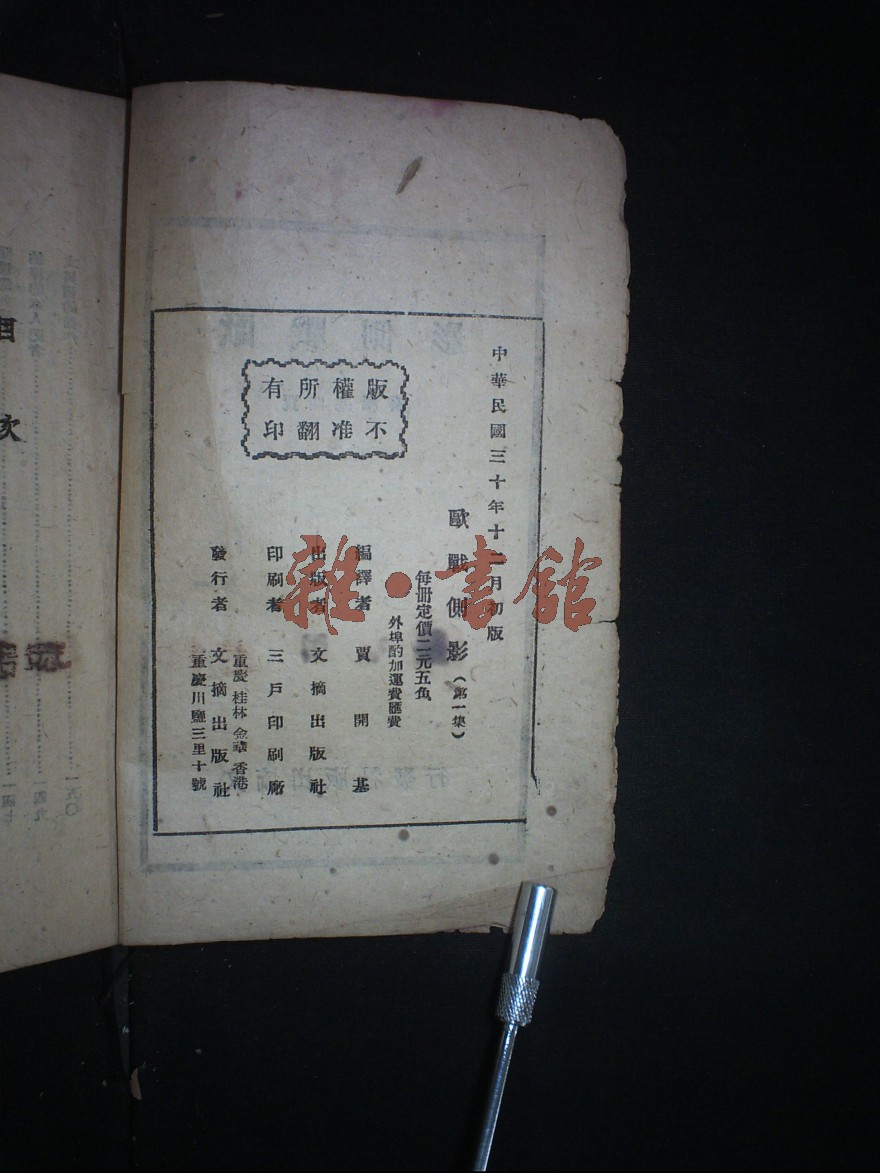 中華民國三十年十二月初版
歐戰側影（第一集）
每冊定價二元五角
外埠酌加運費匯費
編譯者 賈開基
出版者 文摘出版社
印刷者 三戶印刷廠
發行者 文摘出版社
重慶 桂林 金華 香港
重慶川鹽三里十號
版權所有
不准翻印
雜·書館
目次
一五〇
一四九
一四七